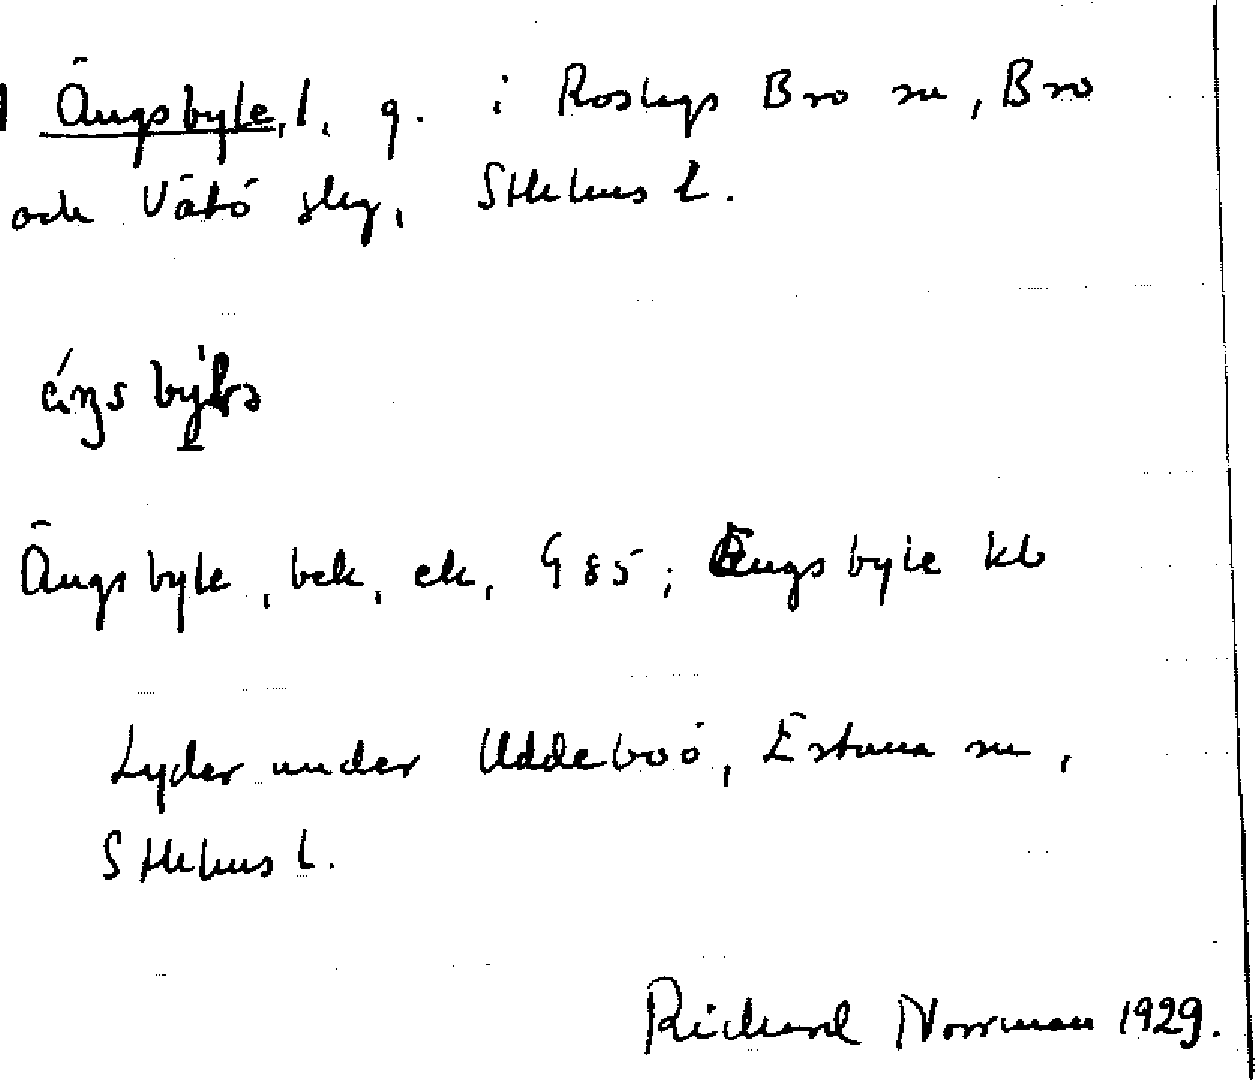 Ängsbyle, l. g. i Roslags Bro sn, Bro
och Vätö slg, Sthlms l.
Ängsbyle, bek, ek, G 85; Ängsbyle kb
Lyder under Uddeboö, Estuna sn,
Sthlms l.
Richard Norrman 1929.